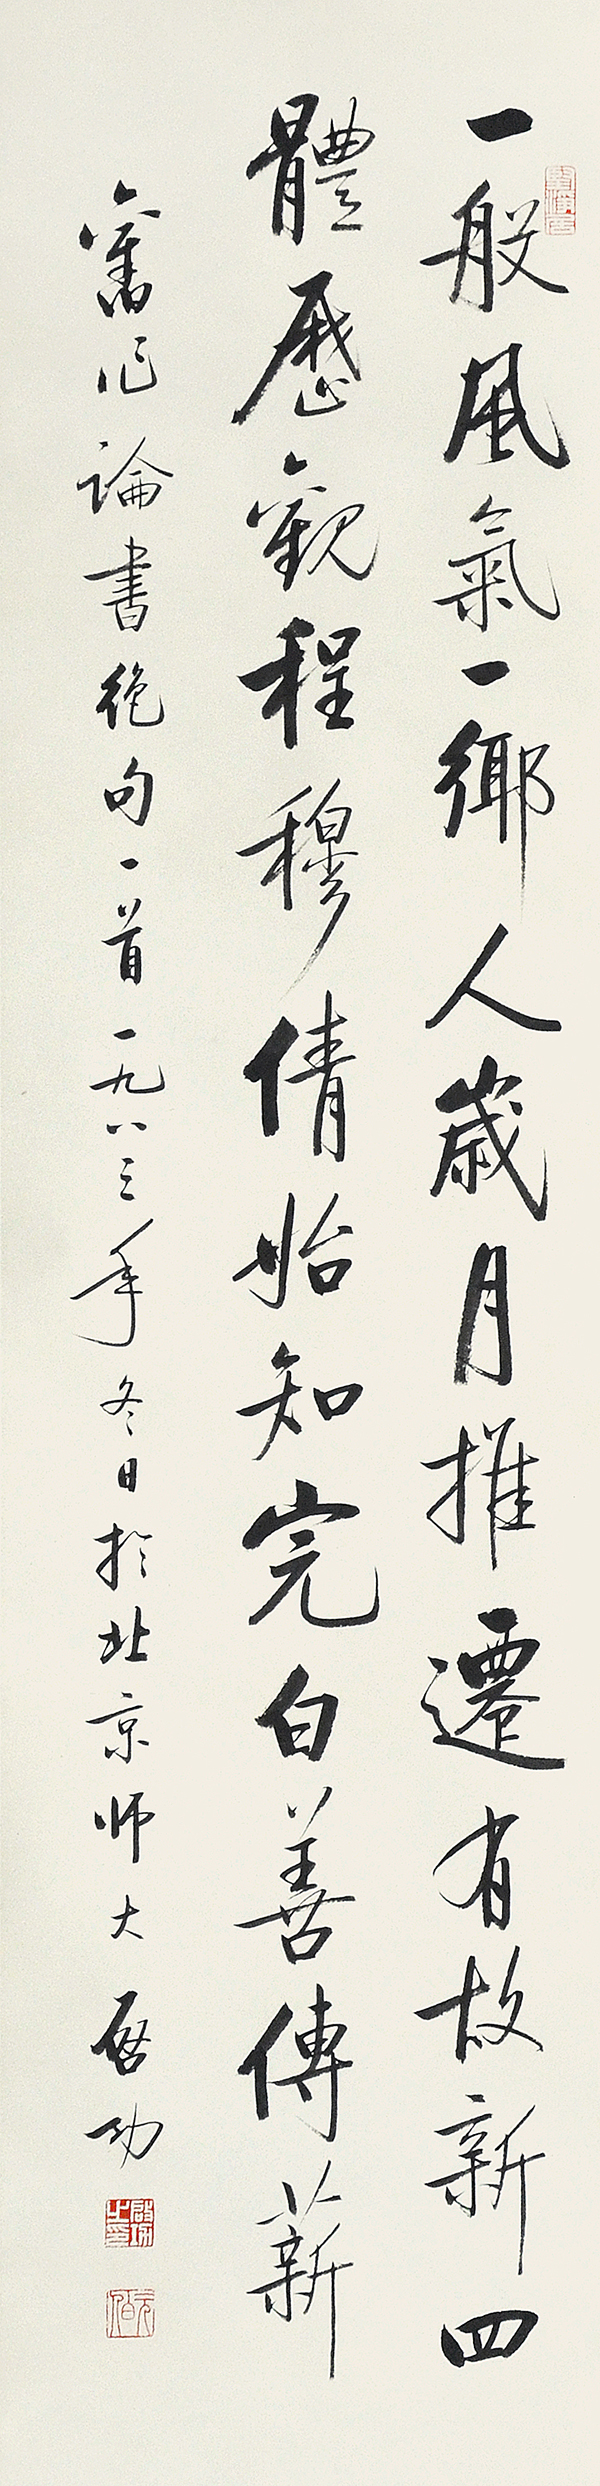 一般風氣一鄉人歲月推遷有故新四
體歷觀程穆倩始知完白善傳薪
舊作論書絕句一首一九八三年冬日於北京師大啟功